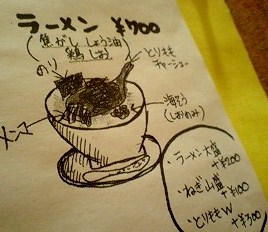 ラーメン ¥700
焦がし しょう油
鶏 しお
のり
とりもも
チャーシュー
海そう
(しおのみ)
メンマ
・ラーメン大盛
+¥200
・ねぎ山盛
+¥100
・とりももW
+¥300